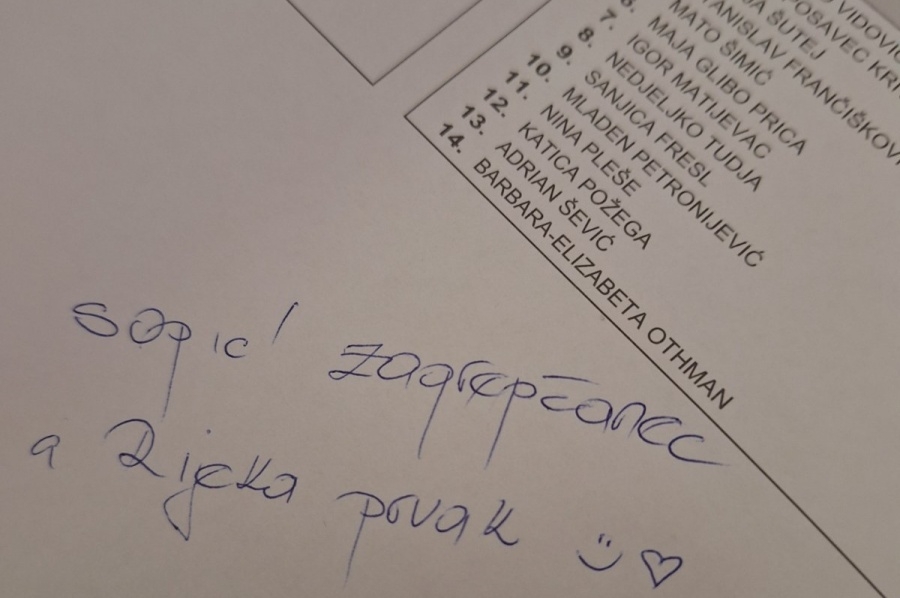 VIDOVIĆ
POSAVEC KRI
ŠUTEJ
STANISLAV FRANČIŠKOVI
6. MATO ŠIMIĆ
7. MAJA GLIBO PRICA
8. IGOR MATIJEVAC
9. NEDJELJKO TUDJA
10. SANJICA FRESL
11. MLADEN PETRONIJEVIĆ
12. NINA PLEŠE
13. KATICA POŽEGA
14. ADRIAN ŠEVIĆ
BARBARA-ELIZABETA OTHMAN
sopić zagrepčanec
a Rijeka prvak :) ♡